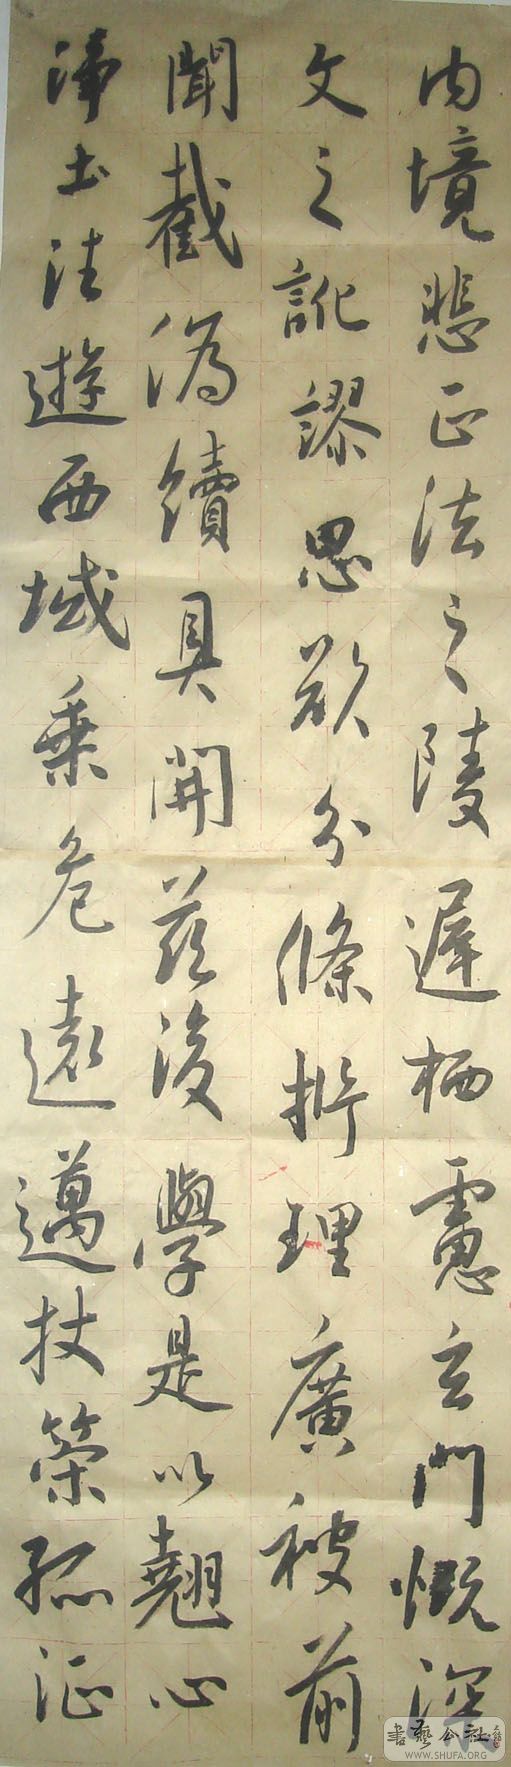 內境悲正法之陵遲栖慮玄門慨深
文之訛謬思欲分條析理廣彼前
聞截偽續真開茲後學是以翹心
淨土法遊西域乘危遠邁杖策孤征
書藝公社
WWW.SHUFA.ORG